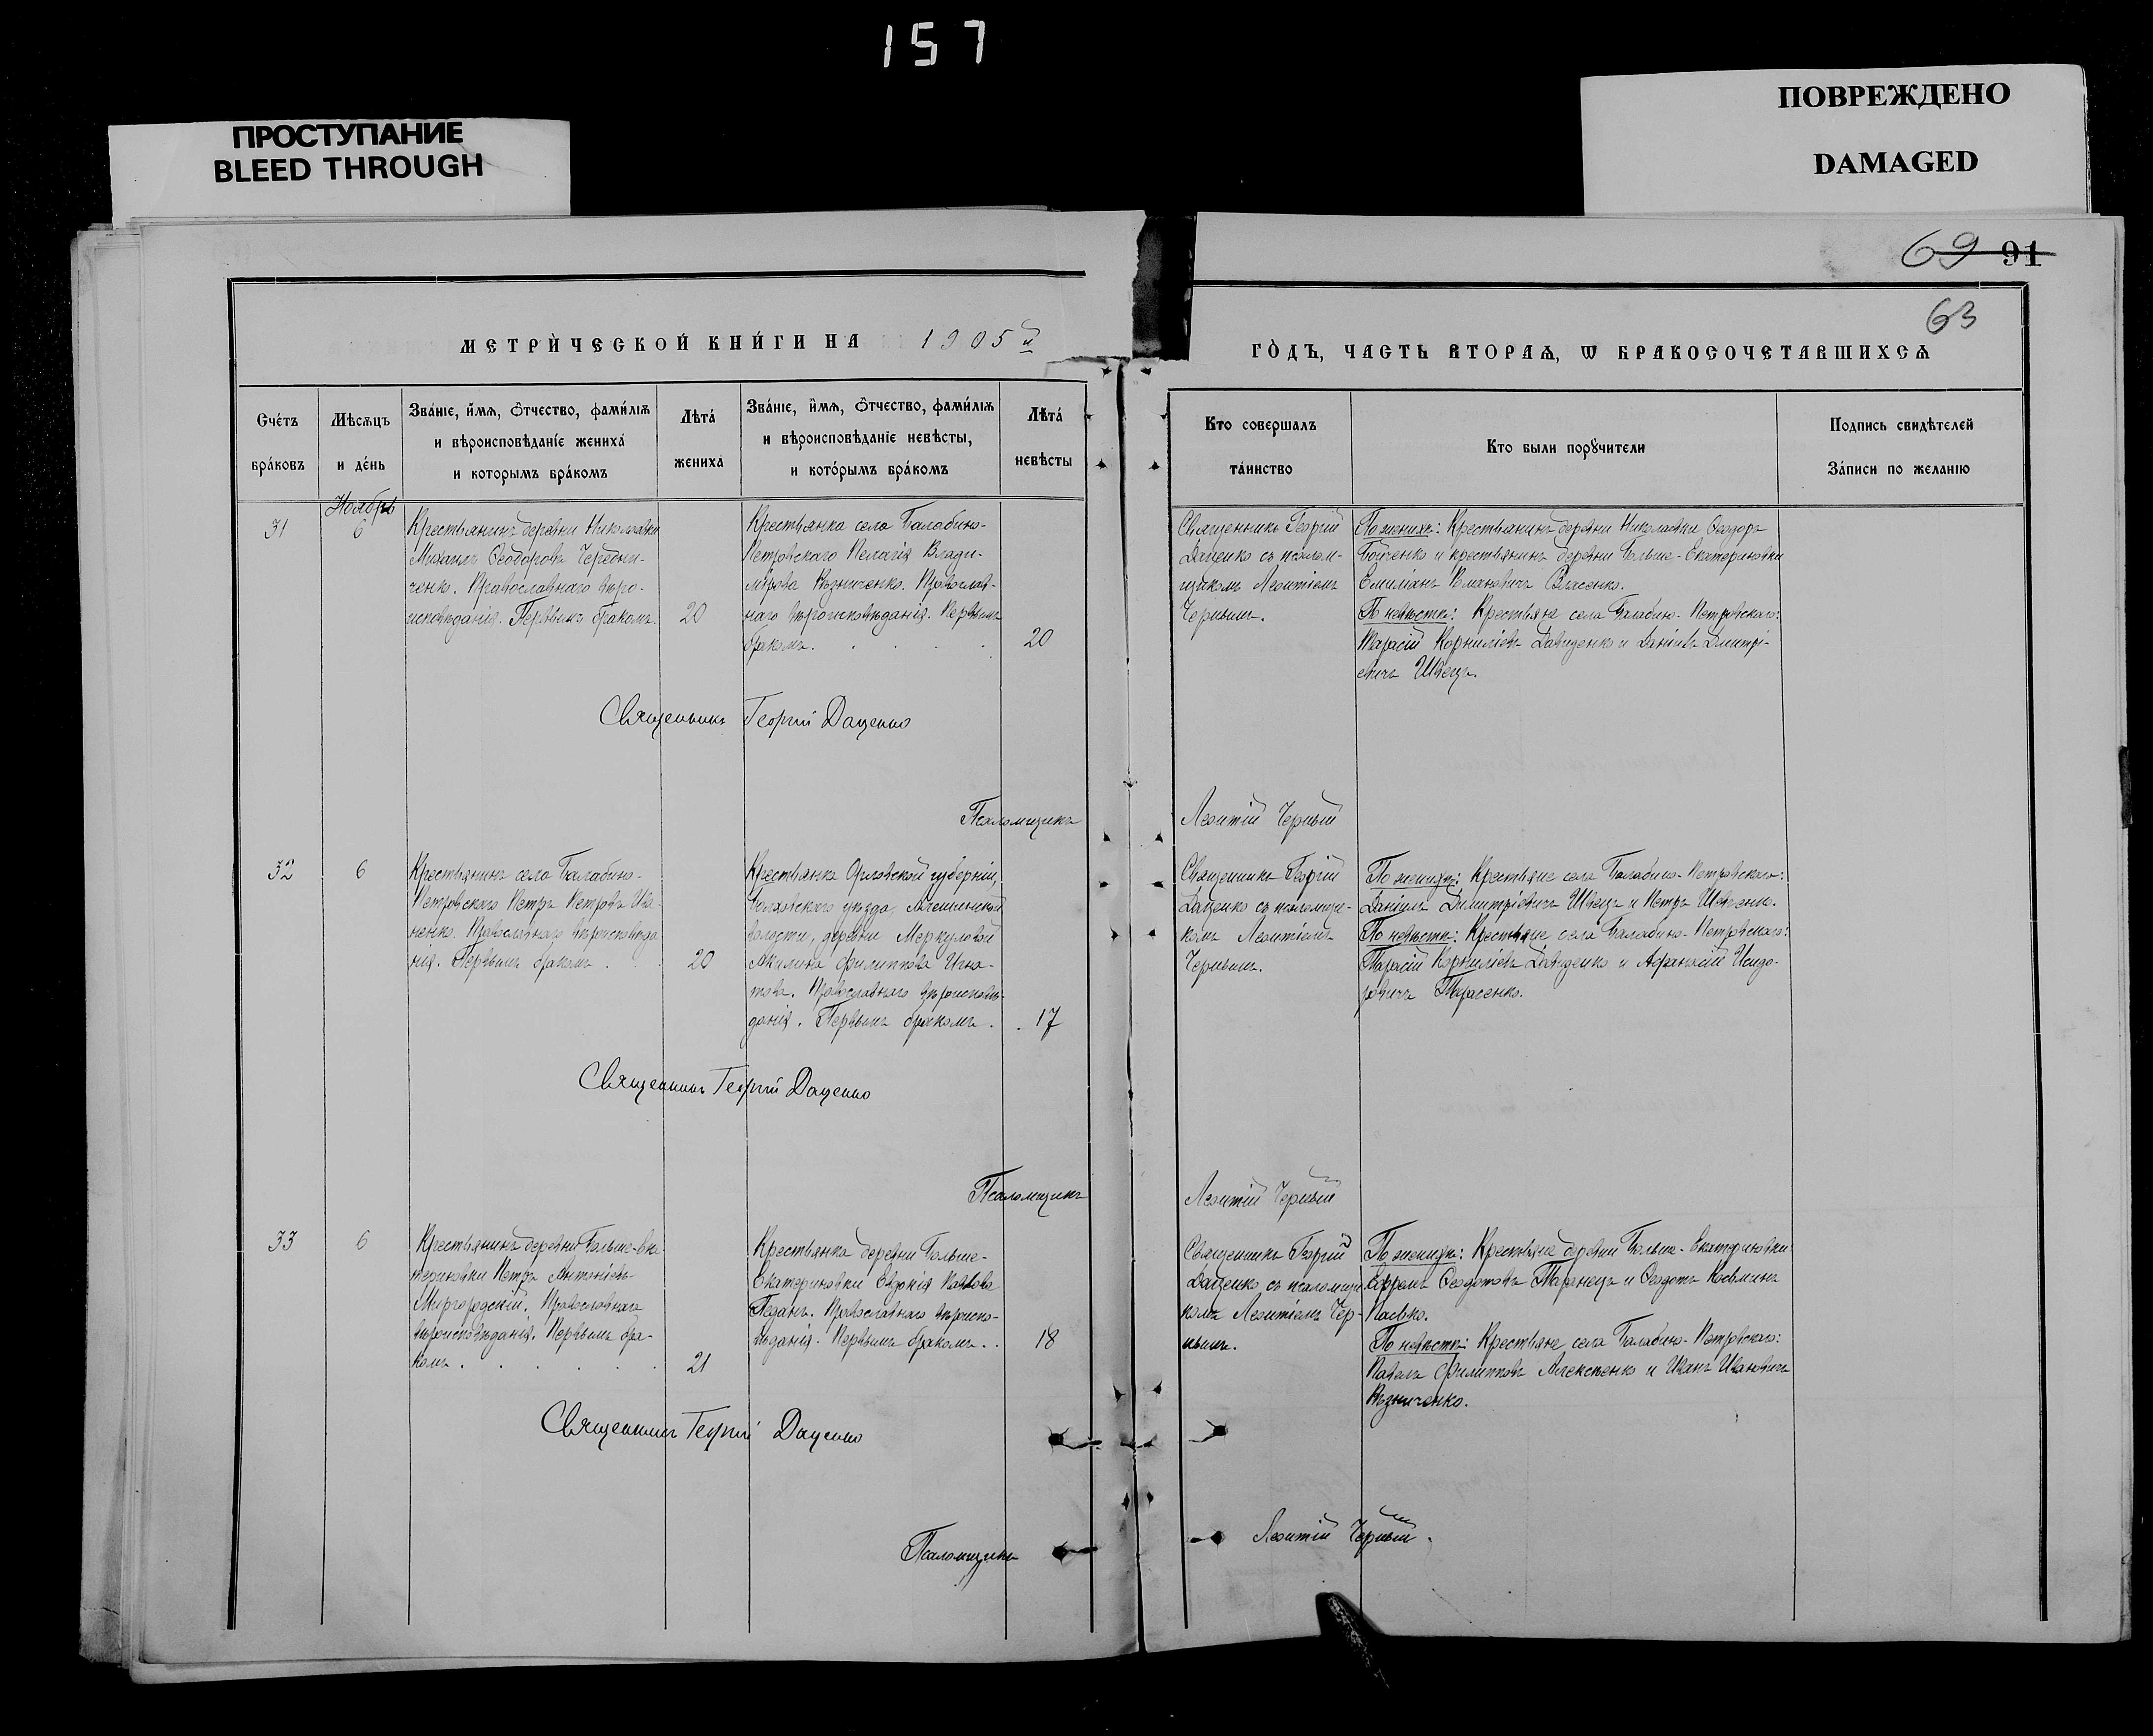 157
ПРОСТУПАНИЕ
BLEED THROUGH
ПОВРЕЖДЕНО
DAMAGED
69 91
63
МЕТРИ́ЧЕСКОЙ КНИ́ГИ НА 1905й
ГО́ДЪ, ЧАСТЬ ВТОРАѦ, Ѡ БРАКОСОЧЕТАВШИХСѦ
Сче́тъ
бра́ковъ
Мѣсѧцъ
и де́нь
Зва́нїе, и́мѧ, ѻ́тчество, фами́лїѧ
и вѣроисповѣ́данїе жениха̀
и которымъ бра́комъ
Лѣта́
жениха̀
Зва́нїе, и́мѧ, ѻ́тчество, фами́лїѧ
и вѣроисповѣ́данїе невѣ́сты,
и кото́рымъ бра́комъ
Лѣта́
невѣ́сты
Кто совершалъ
та́инство
Кто были порꙋчители
Подпись свидѣтелей
За́писи по желанію
Ноябрь
31
6
Крестьянинъ деревни Николаевки
Михаилъ Ѳеодоровъ Чередни-
ченко. Православнаго вѣро-
исповѣданія. Первымъ бракомъ.
20
Крестьянка села Балабино-
Петровскаго Пелагія Влади-
мірова Рѣзниченко. Православ-
наго вѣроисповѣданія. Первымъ
бракомъ. . . . .
20
Священникъ Георгій
Даценко съ псалом-
щикомъ Леонтіемъ
Чернымъ.
По женихѣ: Крестьянинъ деревни Николаевки Ѳеодоръ
Бойченко и крестьянинъ деревни Больше-Екатериновки
Емиліанъ Власенко.
По невѣстѣ: Крестьяне села Балабино-Петровскаго:
Тарасій Корниліевъ Давиденко и Даніилъ Димитрі-
евичъ Швецъ.
Священникъ Георгій Даценко
Псаломщикъ Леонтій Черный
32
6
Крестьянинъ села Балабино-
Петровскаго Петръ Петровъ Ива-
ненко. Православнаго вѣроисповѣда-
нія. Первымъ бракомъ . . .
20
Крестьянка Орловской губерніи,
Болховскаго уѣзда,
волости, деревни Меркуловой
Акилина Филиппова Игна-
това. Православнаго вѣроисповѣ-
данія. Первымъ бракомъ . .
17
Священникъ Георгій
Даценко съ псаломщи-
комъ Леонтіемъ
Чернымъ.
По женихѣ: Крестьяне села Балабино-Петровскаго:
Даніилъ Димитріевичъ Швецъ и Петръ Шевченко.
По невѣстѣ: Крестьяне села Балабино-Петровскаго:
Тарасій Корниліевъ Давиденко и Аѳанасій Исидо-
ровичъ Тарасенко.
Священникъ Георгій Даценко
Псаломщикъ Леонтій Черный
33
6
Крестьянинъ деревни Больше-Ека-
териновки Петръ Антоніевъ
Миргородскій. Православнаго
вѣроисповѣданія. Первымъ бра-
комъ . . . . . .
21
Крестьянка деревни Больше-
Екатериновки Евдокія Павлова
Педанъ. Православнаго вѣроиспо-
вѣданія. Первымъ бракомъ . .
18
Священникъ Георгій
Даценко съ псаломщи-
комъ Леонтіемъ Чер-
нымъ.
По женихѣ: Крестьяне деревни Больше-Екатериновки:
Ефремъ Ѳеодотовъ Таранецъ и Ѳеодотъ Косьминъ
Пасько.
По невѣстѣ: Крестьяне села Балабино-Петровскаго:
Павелъ Филипповъ Алексѣенко и Иванъ Ивановичъ
Рѣзниченко.
Священникъ Георгій Даценко
Псаломщикъ Леонтій Черный.